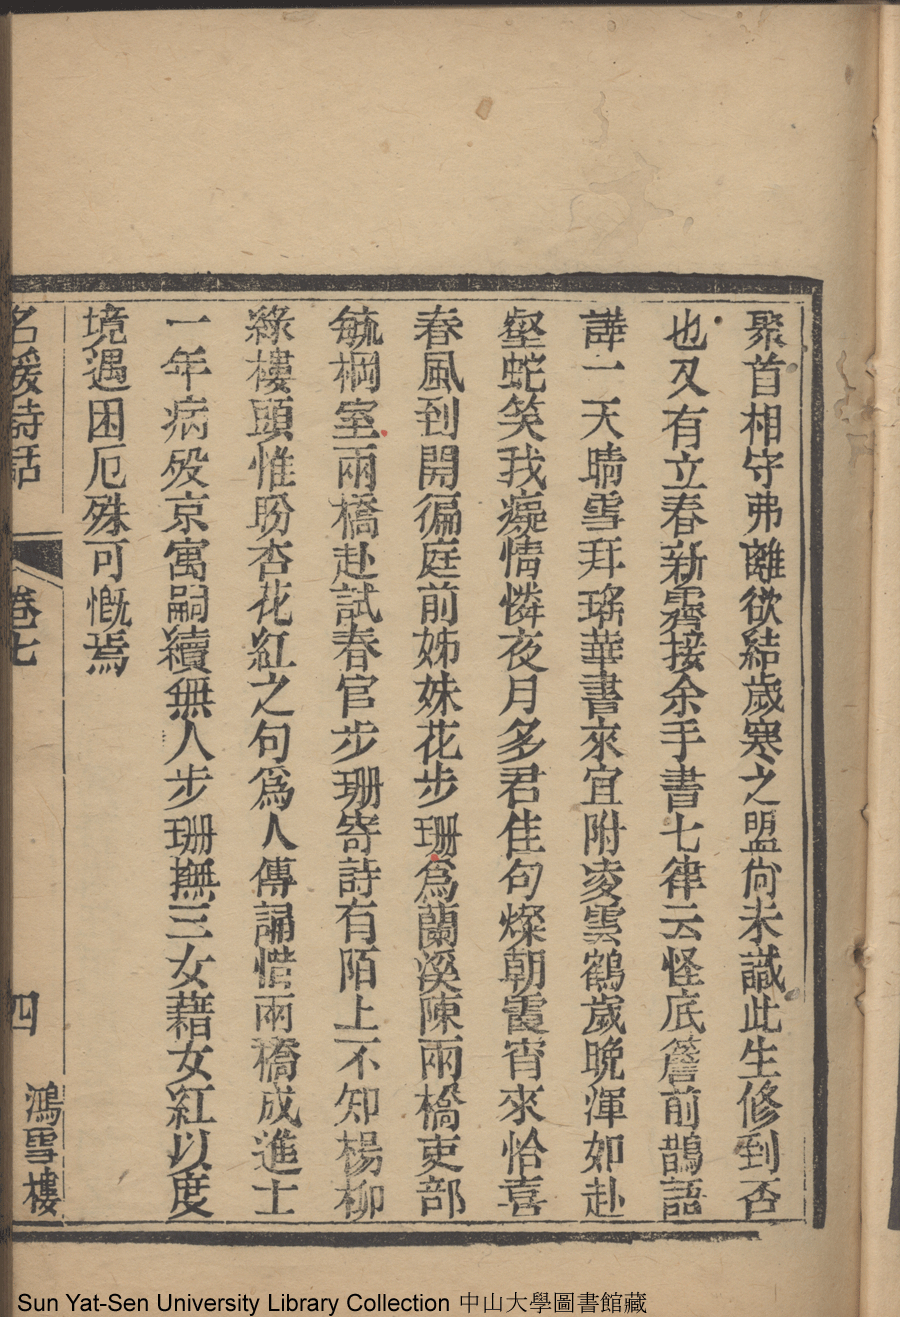 聚首相守弗離欲結歲寒之盟尙未諴此生修到否
也又有立春新霽接余手書七律云怪底簷前鵲語
譁一天晴雪拜瑤華書來宜附凌雲鶴歲晚渾如赴
壑蛇笑我癡情憐夜月多君佳句燦朝霞宵來恰喜
春風到開徧庭前姊妹花步珊爲蘭溪陳兩橋吏部
毓桐室兩橋赴試春官步珊寄詩有陌上不知楊柳
綠樓頭惟盼杏花紅之句爲人傳誦惜兩橋成進士
一年病歿京寓嗣續無人步珊撫三女藉女紅以度
境遇困厄殊可慨焉
名媛詩話 卷七 四 鴻雪樓
Sun Yat-Sen University Library Collection 中山大學圖書館藏